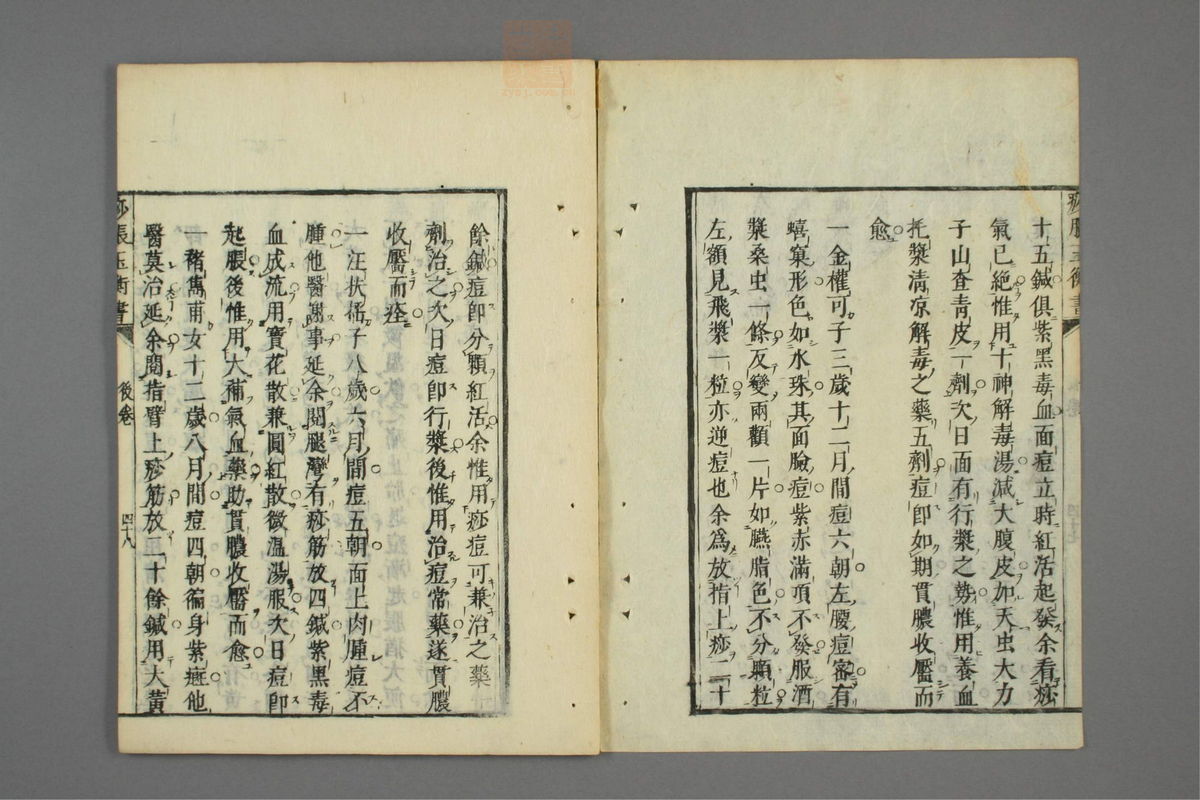 十五鍼俱紫黑毒血面痘立時紅活起發余看痧
氣已絶惟用十神解毒湯減大腹皮加天虫大力
子山查青皮一劑次日面有行漿之勢惟用養血
托漿清凉解毒之藥五劑痘卽如期貫膿收靨而
愈
一金權可子三歲十二月間痘六朝左腰痘密有
蟢窠形色如水珠其面臉痘紫赤滿頂不發服酒
漿桑虫一條反變兩顴一片如臙脂色不分顆粒
左額見飛漿一粒亦逆痘也余爲放指上痧二十
餘鍼痘卽分顆紅活余惟用痧痘可兼治之藥一
劑治之次日痘卽行漿後惟用治痘常藥遂貫膿
收靨而痊
一汪扶搖子八歲六月間痘五朝面上肉腫痘不
腫他醫謝事延余閱腿灣有痧筋放四鍼紫黑毒
血成流用寶花散兼圓紅散微温湯服次日痘卽
起脹後惟用大補氣血藥助貫膿收靨而愈
一褚雋甫女十二歲八月間痘四朝徧身紫斑他
醫莫治延余閱指臂上痧筋放二十餘鍼用大黃
痧脹玉衡書
後卷
四十八